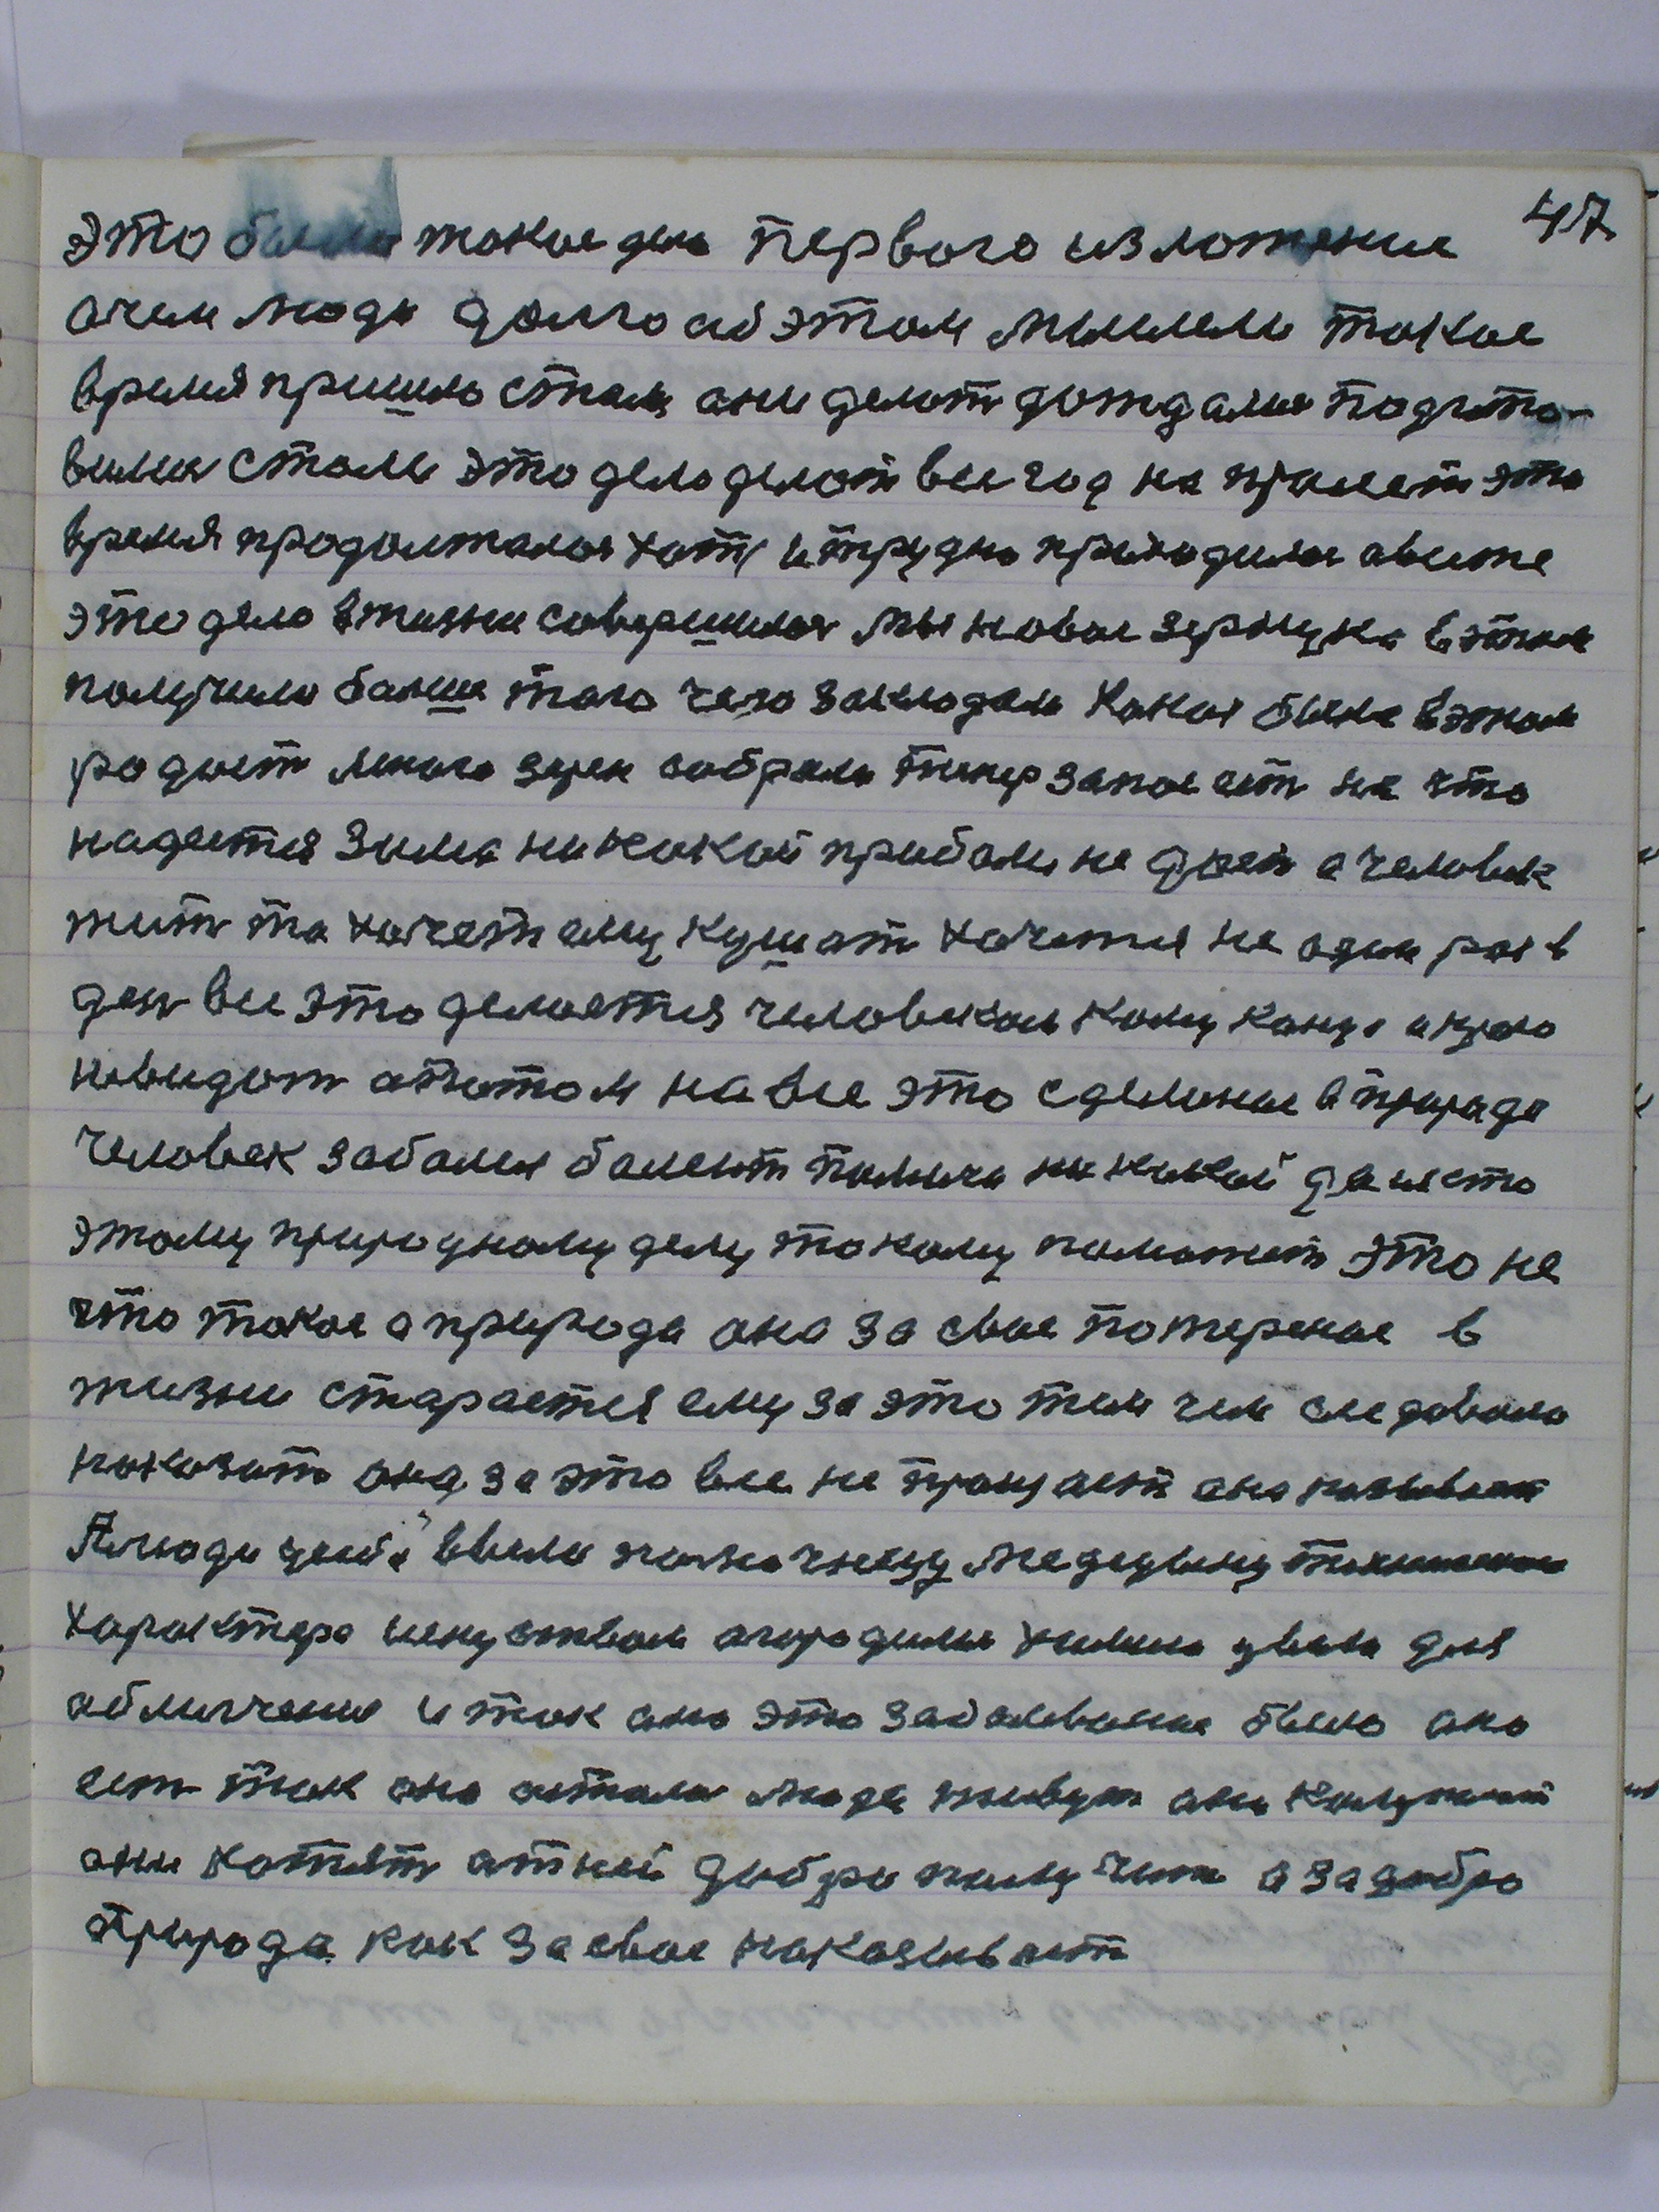 47
это было такое дело первого изложение
очем люди долго об этом мыслели такое
время пришло стали они делат дождалис подгото-
вилис стали это дело делат все год на пролет это
время продолжалос хот и трудно приходилос авсеже
это дело вжизни совершилос мы новое зернушко в этом
получили болше того чего закладали какая была в этом
радост много зерен собрали тепер запас ест на что
надеятся зима никакой прибыли не дает а человек
жит то хочет ему кушат хочется не один раз в
ден все это делается человеком кому конца и краю
невидат а потом на все это сделаное в природе
человек заболел болеит помочи никакой да и кто
этому природному делу такому поможит это не
что такое а природа она за свое потереное в
жизни старается ему за это тем чем следовало
наказат она за это все не прощает она
А люди введи медецину
характера искуством огородилис химию ввели для
облигчения и так оно это заболевание было оно
ест так оно осталос люди живут они
они хотят от ней добра получит а за добро
природа как за свое наказывает